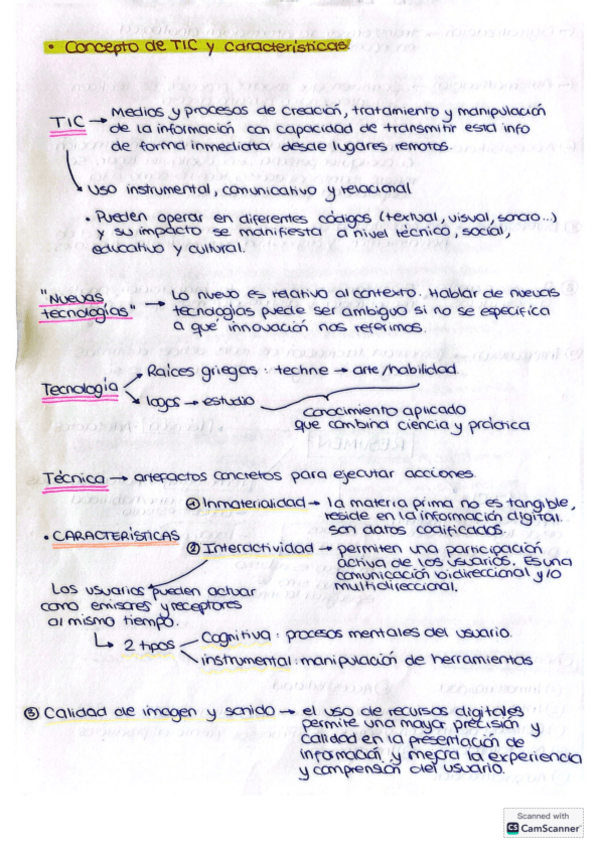 • Concepto de TIC y características
TIC → Medios y procesos de creación, tratamiento y manipulación
de la información con capacidad de transmitir esta info
de forma inmediata desde lugares remotos.
Uso instrumental, comunicativo y relacional
• Pueden operar en diferentes códigos (textual, visual, sonoro...)
y su impacto se manifiesta a nivel técnico, social,
educativo y cultural.
"Nuevas tecnologías" → Lo nuevo es relativo al contexto. Hablar de nuevas
tecnologías puede ser ambiguo si no se especifica
a qué innovación nos referimos.
Tecnología
Raíces griegas: techne → arte/habilidad.
logos → estudio
Conocimiento aplicado
que combina ciencia y práctica
Técnica → artefactos concretos para ejecutar acciones.
• CARACTERÍSTICAS
① Inmaterialidad → la materia prima no es tangible,
reside en la información digital.
son datos codificados.
② Interactividad → permiten una participación
activa de los usuarios. Es una
comunicación bidireccional y/o
multidireccional.
Los usuarios pueden actuar
como emisores y receptores
al mismo tiempo.
↳ 2 tipos
Cognitiva: procesos mentales del usuario.
instrumental: manipulación de herramientas
③ Calidad de imagen y sonido → el uso de recursos digitales
permite una mayor precisión y
calidad en la presentación de
información y mejora la experiencia
y comprensión del usuario.
Scanned with
CS CamScanner